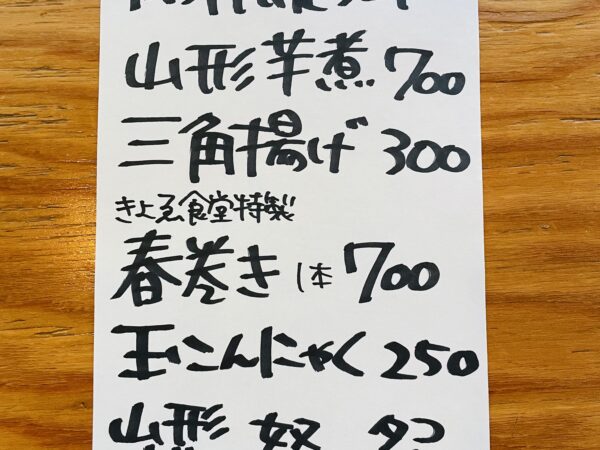 山形芋煮 700
三角揚げ 300
きよゑ食堂特製
春巻き 1本 700
玉こんにゃく 250
山形